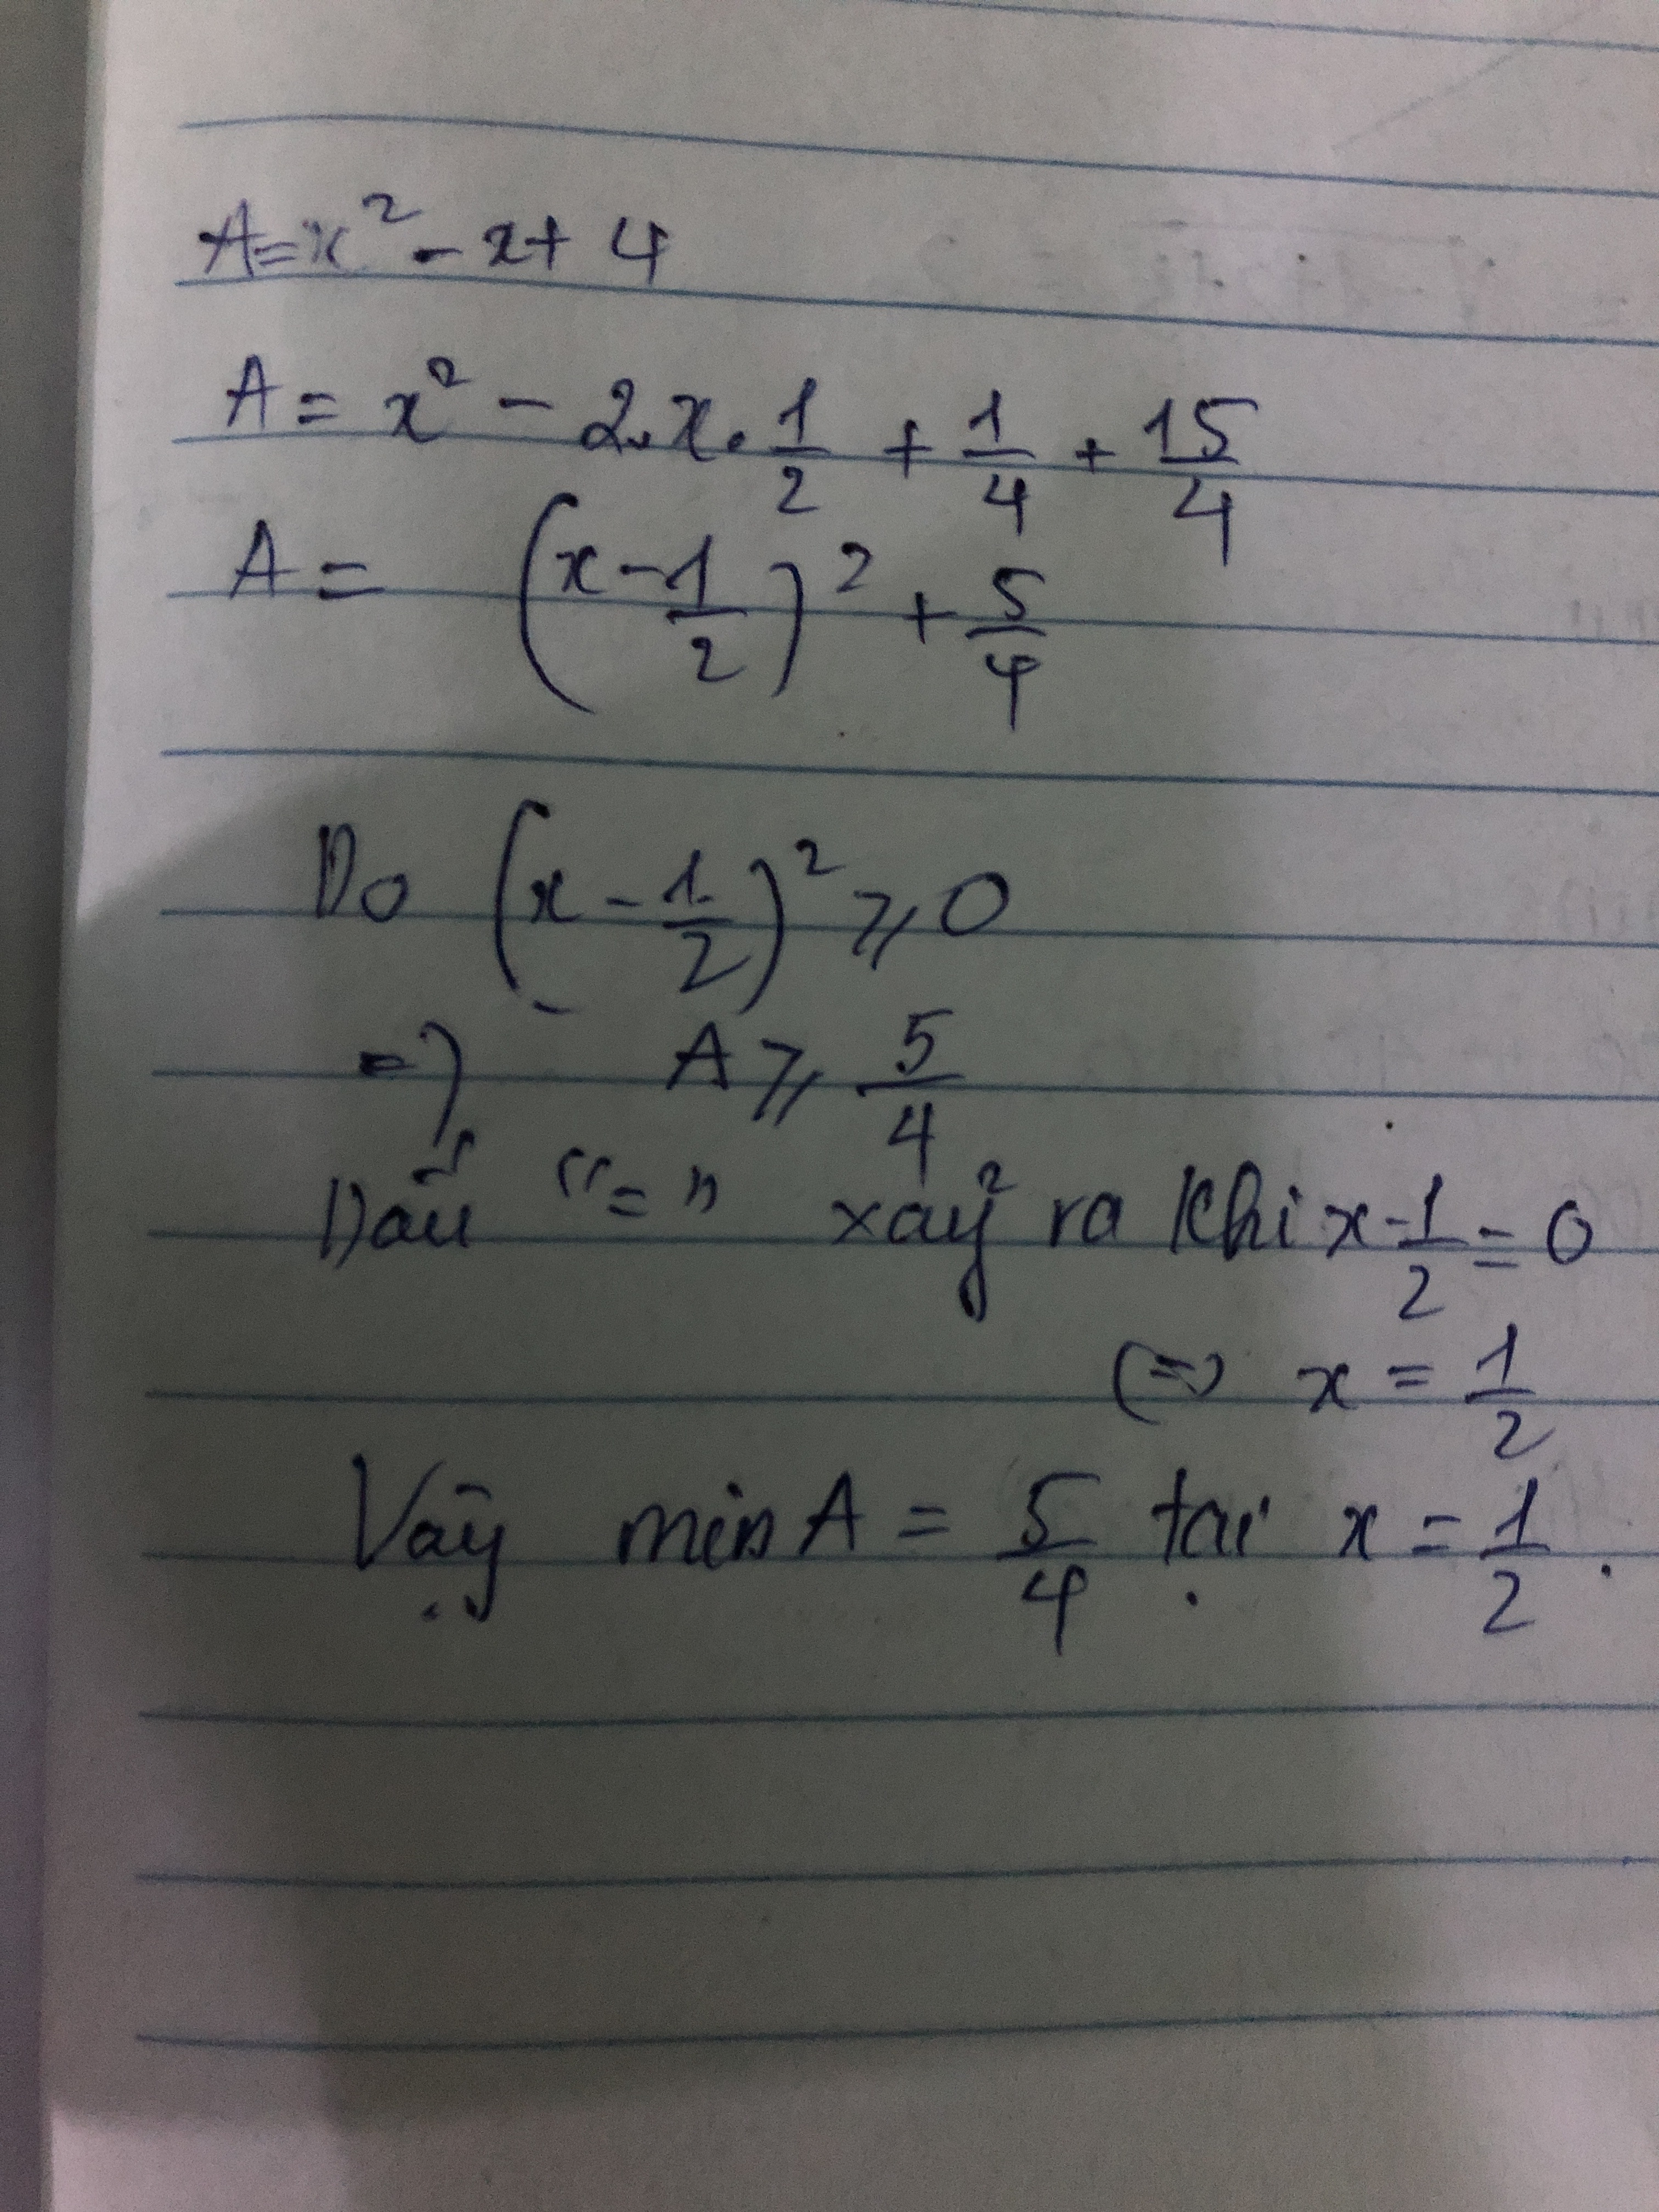 A = x² - x + 4
A = x² - 2.x.1/2 + 1/4 + 15/4
A = (x - 1/2)² + 5/4
Do (x - 1/2)² ⩾ 0
=> A ⩾ 5/4
Dấu "=" xảy ra khi x - 1/2 = 0
<=> x = 1/2
Vậy min A = 5/4 tại x = 1/2.